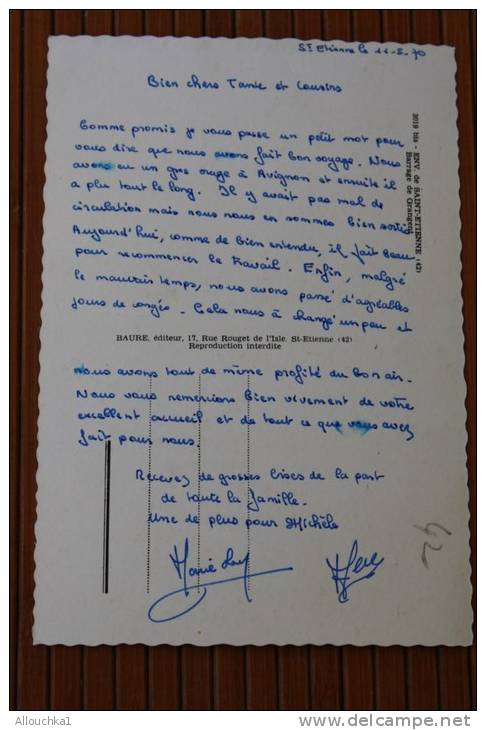 St Etienne le 11-5-70
Bien chers Tante et Cousins
Comme promis je vous passe un petit mot pour
vous dire que nous avons fait bon voyage. Nous
avons eu un gros orage à Avignon et ensuite il
a plus tout le long. Il y avait pas mal de
circulation mais nous nous en sommes bien sortis
Aujourd'hui, comme de bien entendu, il fait beau
pour recommencer le travail. Enfin, malgré
le mauvais temps, nous avons passé d'agréables
jours de congés. Cela nous à changé un peu et
2019 bis - ENV. de SAINT-ETIENNE (42)
Barrage de Grangent
BAURE, éditeur, 17, Rue Rouget de l'Isle. St-Etienne (42)
Reproduction interdite
nous avons tout de même profité du bon air.
Nous vous remercions bien vivement de votre
excellent accueil et de tout ce que vous avez
fait pour nous.
Recevez de grosses bises de la part
de toute la famille.
Une de plus pour Michèle
42
Marie
Allouchka1
© DELCAMPE.NET